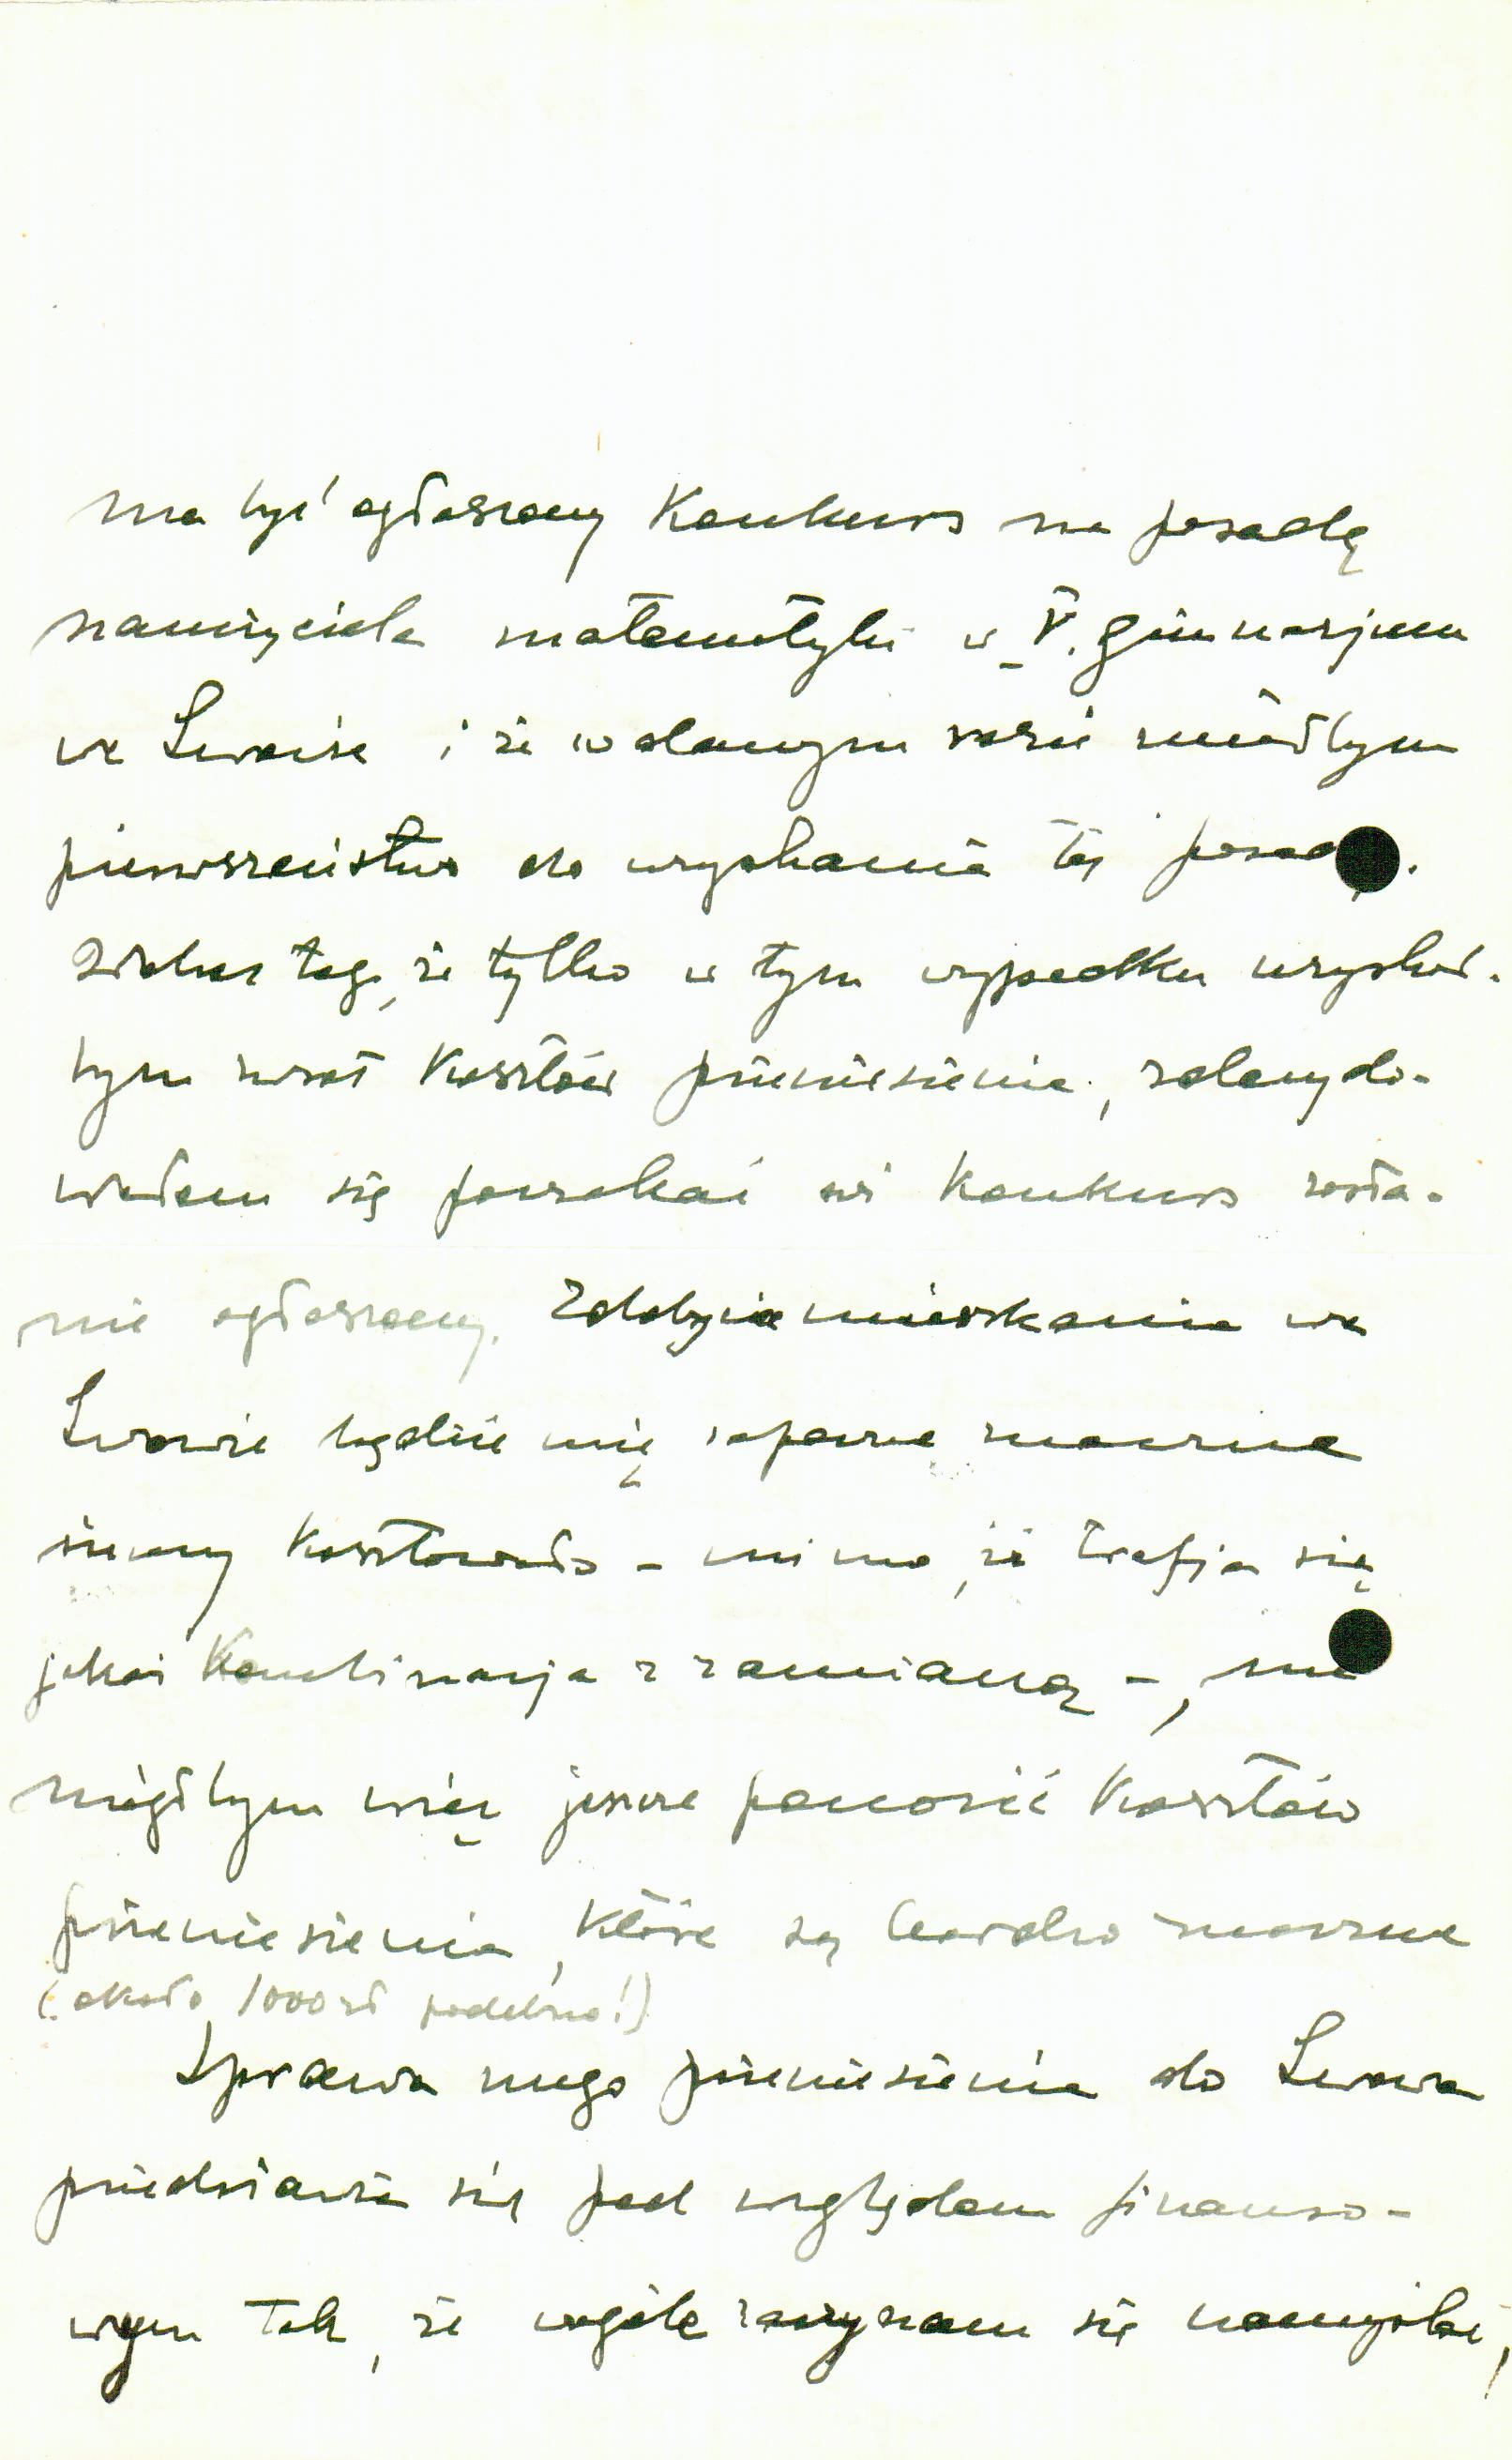 ma być ogłoszony Konkurs na posadę
nauczyciela matematyki w V. gimnazjum
we Lwowie i że w danym razie miałbym
pierwszeństwo do uzyskania tej posady.
Wobec tego, że tylko w tym wypadku uzyskał-
bym zwrot Kosztów przeniesienia, zdecydo-
wałem się poczekać aż Konkurs zosta-
nie ogłoszony. Zdobycie mieszkania we
Lwowie będzie mię zapewne znaczne
sumy Kosztowało - mimo, że trafja się
jakaś Kombinacja z zamianą -, nie
mógłbym więc jeszcze ponosić Kosztów
przeniesienia, które są bardzo znaczne
(około 1000 zł podobno!)
Sprawa mego przeniesienia do Lwowa
przedstawia się pod względem finanso-
wym tak, że wogóle zaczynam się namyślać,